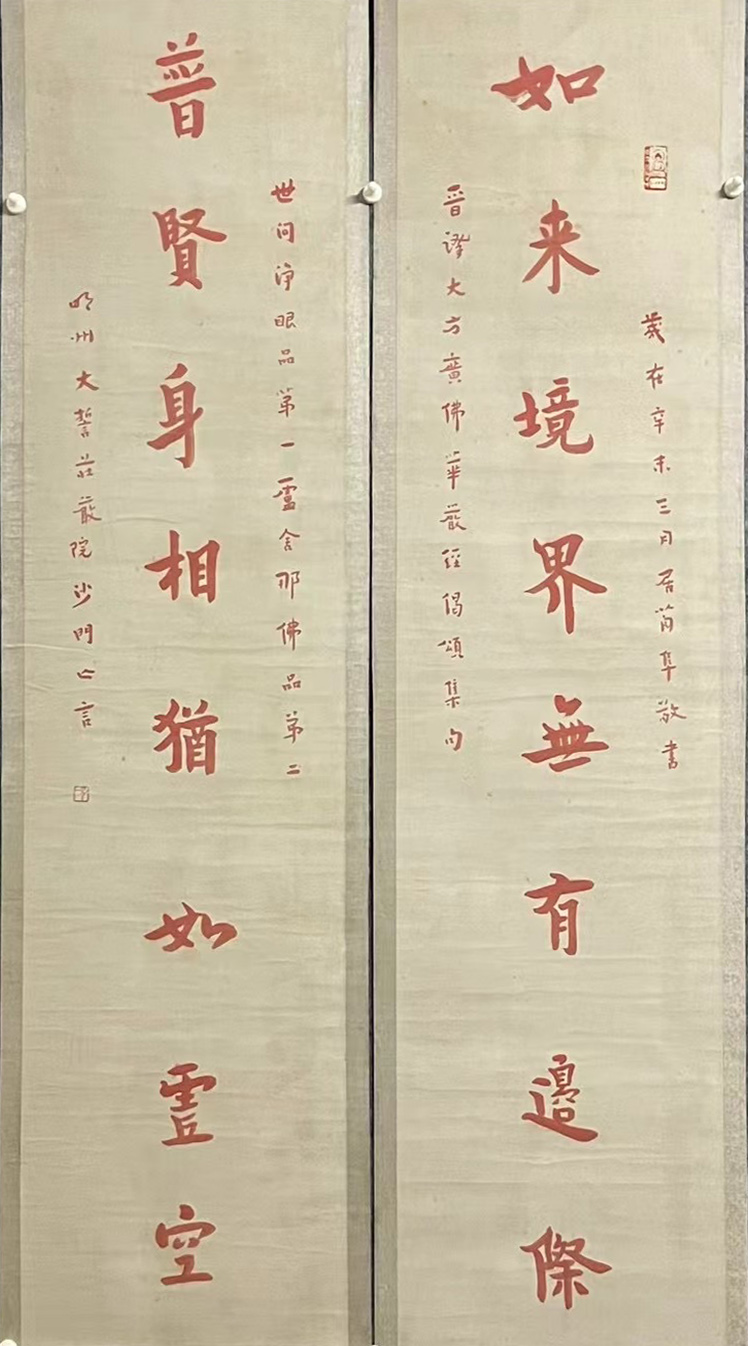 歲在辛未三月居蒟隼敬書
如来境界無有邊際
晋譯大方廣佛華嚴經偈頌集句
世间淨眼品第一盧舍那佛品第二
普賢身相猶如虛空
明州大誓莊嚴院沙門亡言